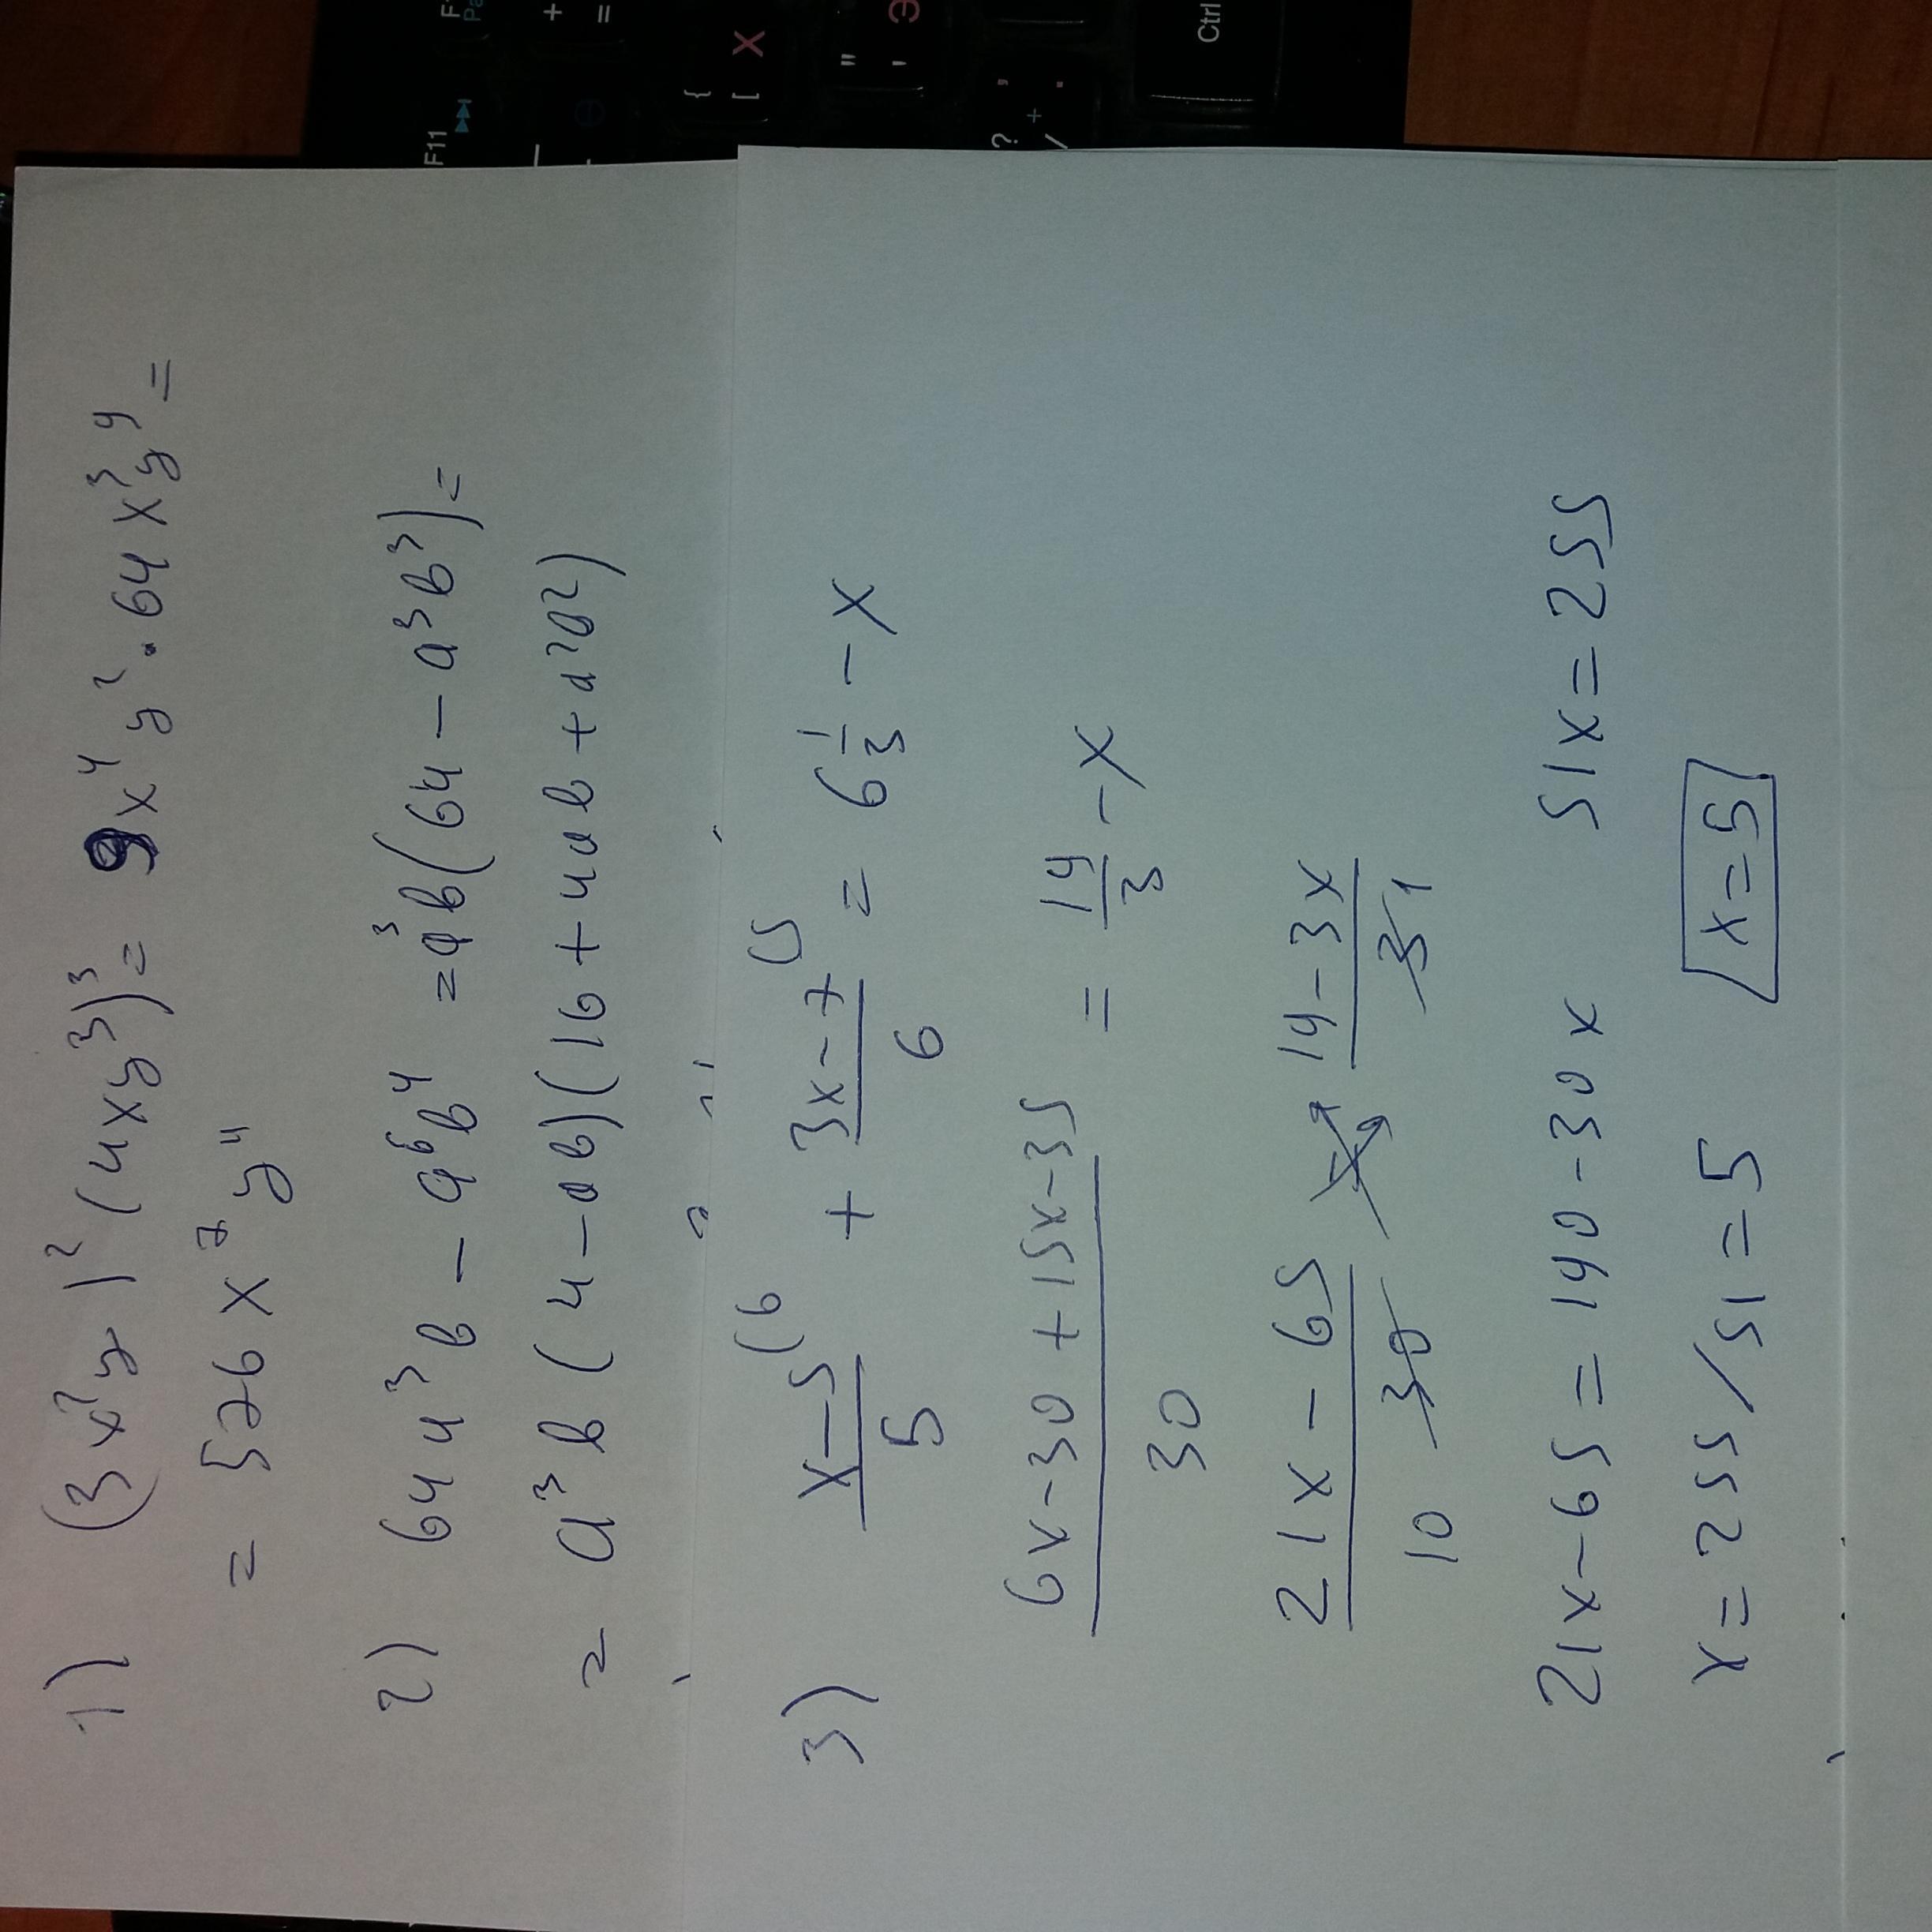 1) (3x²y)² (4xy³)³ = 9x⁴y² · 64x³y⁹ =
= 576x⁷y¹¹
2) 64a³b − a⁶b⁴ = a³b(64 − a³b³) =
= a³b(4 − ab)(16 + 4ab + a²b²)
3) x−5/5 (6 + 3x−7/6 (5 = 6 1/3 − x
6x−30+15x−35/30 = 19/3 − x
21x−65/30 10 19−3x/3 1
21x−65 = 190−30x 51x = 255
x = 255/51 = 5 x = 5
F11
+
=
{
[ Х
"
' Э
?
/
,
.
Ctrl